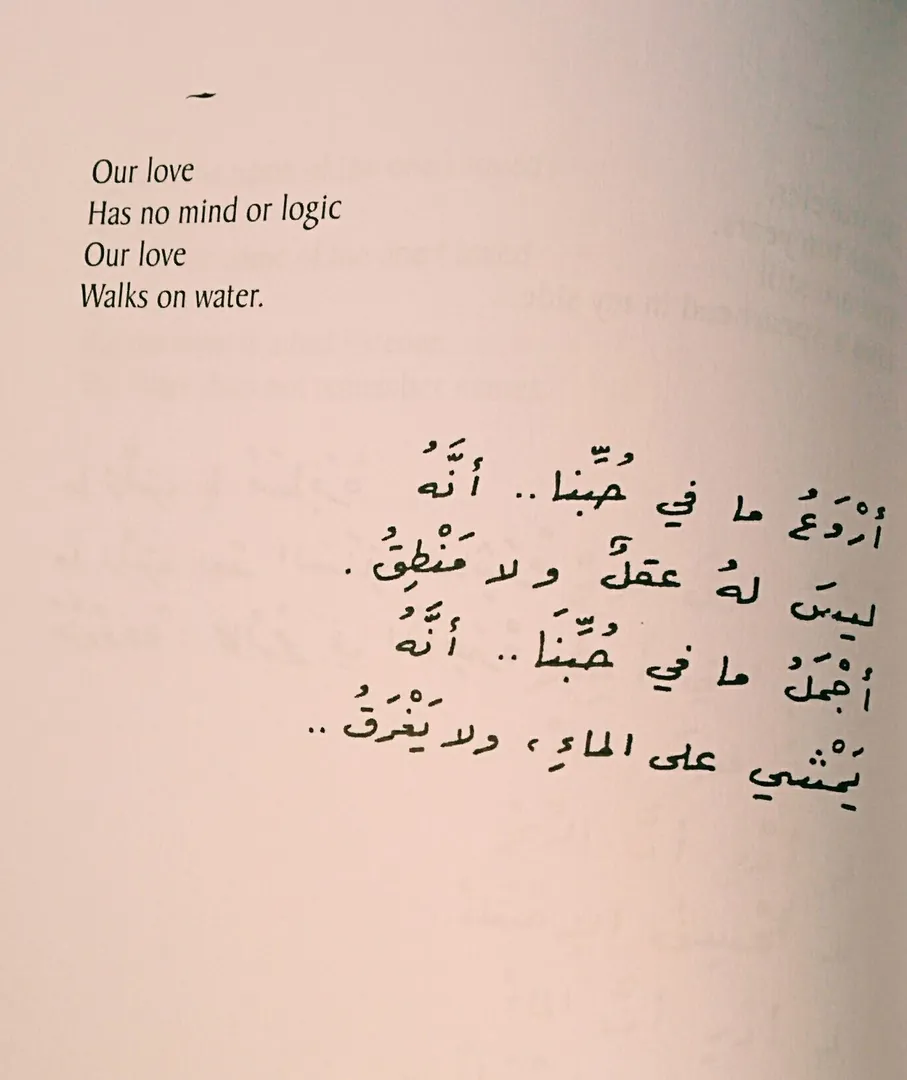 Our love
Has no mind or logic
Our love
Walks on water.
أَرْوَعُ ما في حُبِّنا .. أنَّهُ
ليسَ لهُ عقلٌ و لا مَنْطِقُ .
أَجْمَلُ ما في حُبِّنَا .. أنَّهُ
يَمْشي على الماءِ ، ولا يَغْرَقُ ..